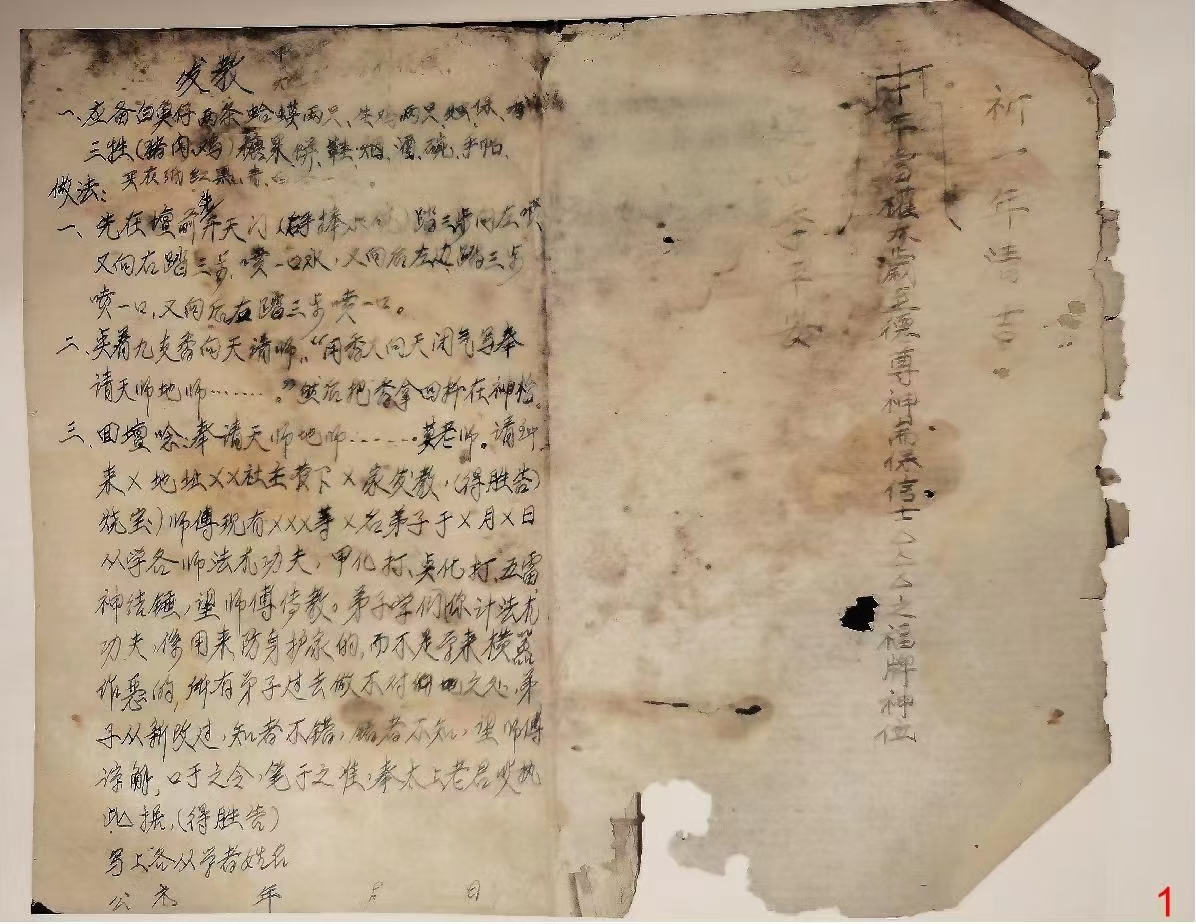 发教
一、应备白鱼仔两条蛤蟆两只、生鸡两只
三牲(猪肉、鸡)糖果饼、鞋、烟、酒、碗、手帕、
买衣纸红黑、青、白
做法:
一、先在壇前开天门(右手捧水碗)踏三步向左喷
又向右踏三步,喷一口水,又向后左边踏三步
喷一口,又向后右踏三步喷一口。
二、卖着九支香向天请师、“用香火向天闭气写奉
请天师地师……。”然后把香拿回插在神枱。
三、回壇唸:奉请天师地师……莫老师。请到
来×地址××社主黄下×家发教,(得胜告)
烧宝)师傅现有×××等×名弟子于×月×日
从学各师法尤功夫,甲化打、吳化打、五雷
神结锤,望师傅传教。弟子学们你计法尤
功夫,係用来防身护家的,而不是学来横器
作惡的,所有弟子过去做不付
天地之处,弟
子从新改过,知者不错,错者不知,望师傅
谅解,口于之令,笔于之准,奉太上老君
执
此据,(得胜告)
写上各从学者姓名
公元 年 月 日
祈一年清吉
年当
太歲至德尊神
保信士厶厶厶之福牌神位
季平安
1